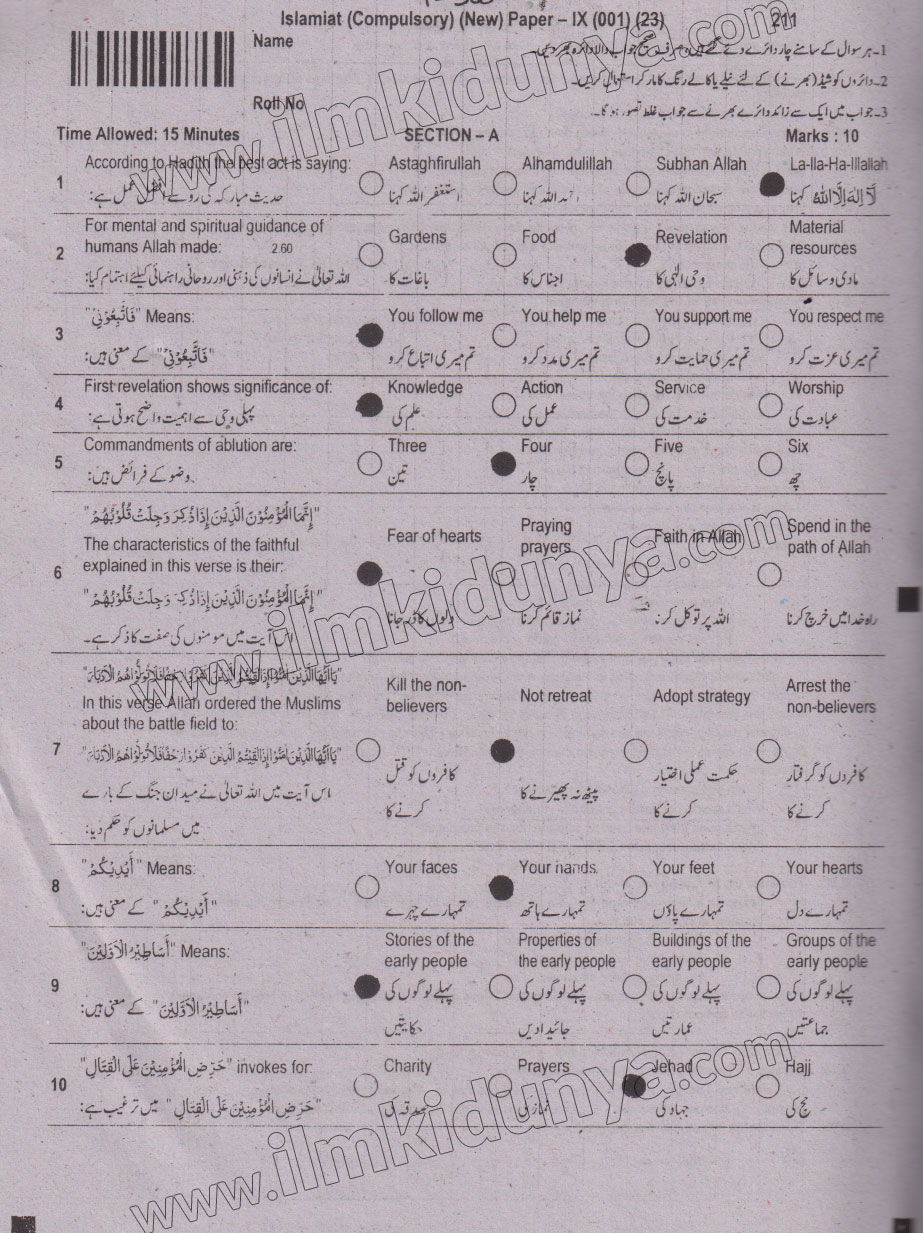 Islamiat (Compulsory) (New) Paper – IX (001) (23) 211
Name
1۔ ہر سوال کے سامنے چار دائرے دئے گئے ہیں۔ صرف صحیح جواب والا دائرہ بھر دیں۔
2۔ دائروں کو شیڈ (بھرنے) کے لئے نیلے یا کالے رنگ کا مارکر استعمال کریں۔
Roll No
3۔ جواب میں ایک سے زائد دائرے بھرنے سے جواب غلط تصور ہو گا۔
Time Allowed: 15 Minutes SECTION – A Marks : 10
1 According to Hadith the best act is saying: Astaghfirullah Alhamdulillah Subhan Allah La-Ila-Ha-Illallah
حدیث مبارکہ کی رو سے افضل عمل ہے: استغفر اللہ کہنا الحمد اللہ کہنا سبحان اللہ کہنا لَا اِلٰهَ اِلَّا اللهُ کہنا
2 For mental and spiritual guidance of
humans Allah made: 2.60 Gardens Food Revelation Material
resources
اللہ تعالیٰ نے انسانوں کی ذہنی اور روحانی راہنمائی کیلئے اہتمام کیا: باغات کا اجناس کا وحی الٰہی کا مادی وسائل کا
3 "فَاتَّبِعُوْنِيْ" Means: You follow me You help me You support me You respect me
"فَاتَّبِعُوْنِيْ" کے معنی ہیں: تم میری اتباع کرو تم میری مدد کرو تم میری حمایت کرو تم میری عزت کرو
4 First revelation shows significance of: Knowledge Action Service Worship
پہلی وحی سے اہمیت واضح ہوتی ہے: علم کی عمل کی خدمت کی عبادت کی
5 Commandments of ablution are: Three Four Five Six
وضو کے فرائض ہیں: تین چار پانچ چھ
"إِنَّمَا الْمُؤْمِنُوْنَ الَّذِيْنَ إِذَا ذُكِرَ وَجِلَتْ قُلُوْبُهُمْ"
6 The characteristics of the faithful
explained in this verse is their: Fear of hearts Praying
prayers Faith in Allah Spend in the
path of Allah
"إِنَّمَا الْمُؤْمِنُوْنَ الَّذِيْنَ إِذَا ذُكِرَ وَجِلَتْ قُلُوْبُهُمْ"
اس آیت میں مومنوں کی صفت کا ذکر ہے۔ دلوں کا ڈر جانا نماز قائم کرنا اللہ پر توکل کرنا راہ خدا میں خرچ کرنا
"يَا أَيُّهَا الَّذِيْنَ آمَنُوْا إِذَا لَقِيْتُمُ الَّذِيْنَ كَفَرُوْا زَحْفًا فَلَا تُوَلُّوْهُمُ الْأَدْبَارَ"
7 In this verse Allah ordered the Muslims
about the battle field to: Kill the non-
believers Not retreat Adopt strategy Arrest the
non-believers
"يَا أَيُّهَا الَّذِيْنَ آمَنُوْا إِذَا لَقِيْتُمُ الَّذِيْنَ كَفَرُوْا زَحْفًا فَلَا تُوَلُّوْهُمُ الْأَدْبَارَ"
اس آیت میں اللہ تعالیٰ نے میدان جنگ کے بارے
میں مسلمانوں کو حکم دیا: کافروں کو قتل
کرنے کا پیٹھ نہ پھیرنے کا حکمت عملی اختیار
کرنے کا کافروں کو گرفتار
کرنے کا
8 "أَيْدِيْكُمْ" Means: Your faces Your hands Your feet Your hearts
"أَيْدِيْكُمْ" کے معنی ہیں: تمہارے چہرے تمہارے ہاتھ تمہارے پاؤں تمہارے دل
9 "أَسَاطِيْرُ الْأَوَّلِيْنَ" Means: Stories of the
early people Properties of
the early people Buildings of the
early people Groups of the
early people
"أَسَاطِيْرُ الْأَوَّلِيْنَ" کے معنی ہیں: پہلے لوگوں کی
حکایتیں پہلے لوگوں کی
جائیدادیں پہلے لوگوں کی
عمارتیں پہلے لوگوں کی
جماعتیں
10 "حَرِّضِ الْمُؤْمِنِيْنَ عَلَى الْقِتَالِ" invokes for: Charity Prayers Jehad Hajj
"حَرِّضِ الْمُؤْمِنِيْنَ عَلَى الْقِتَالِ" میں ترغیب ہے: صدقہ کی نماز کی جہاد کی حج کی
www.ilmkidunya.com
www.ilmkidunya.com
www.ilmkidunya.com
www.ilmkidunya.com